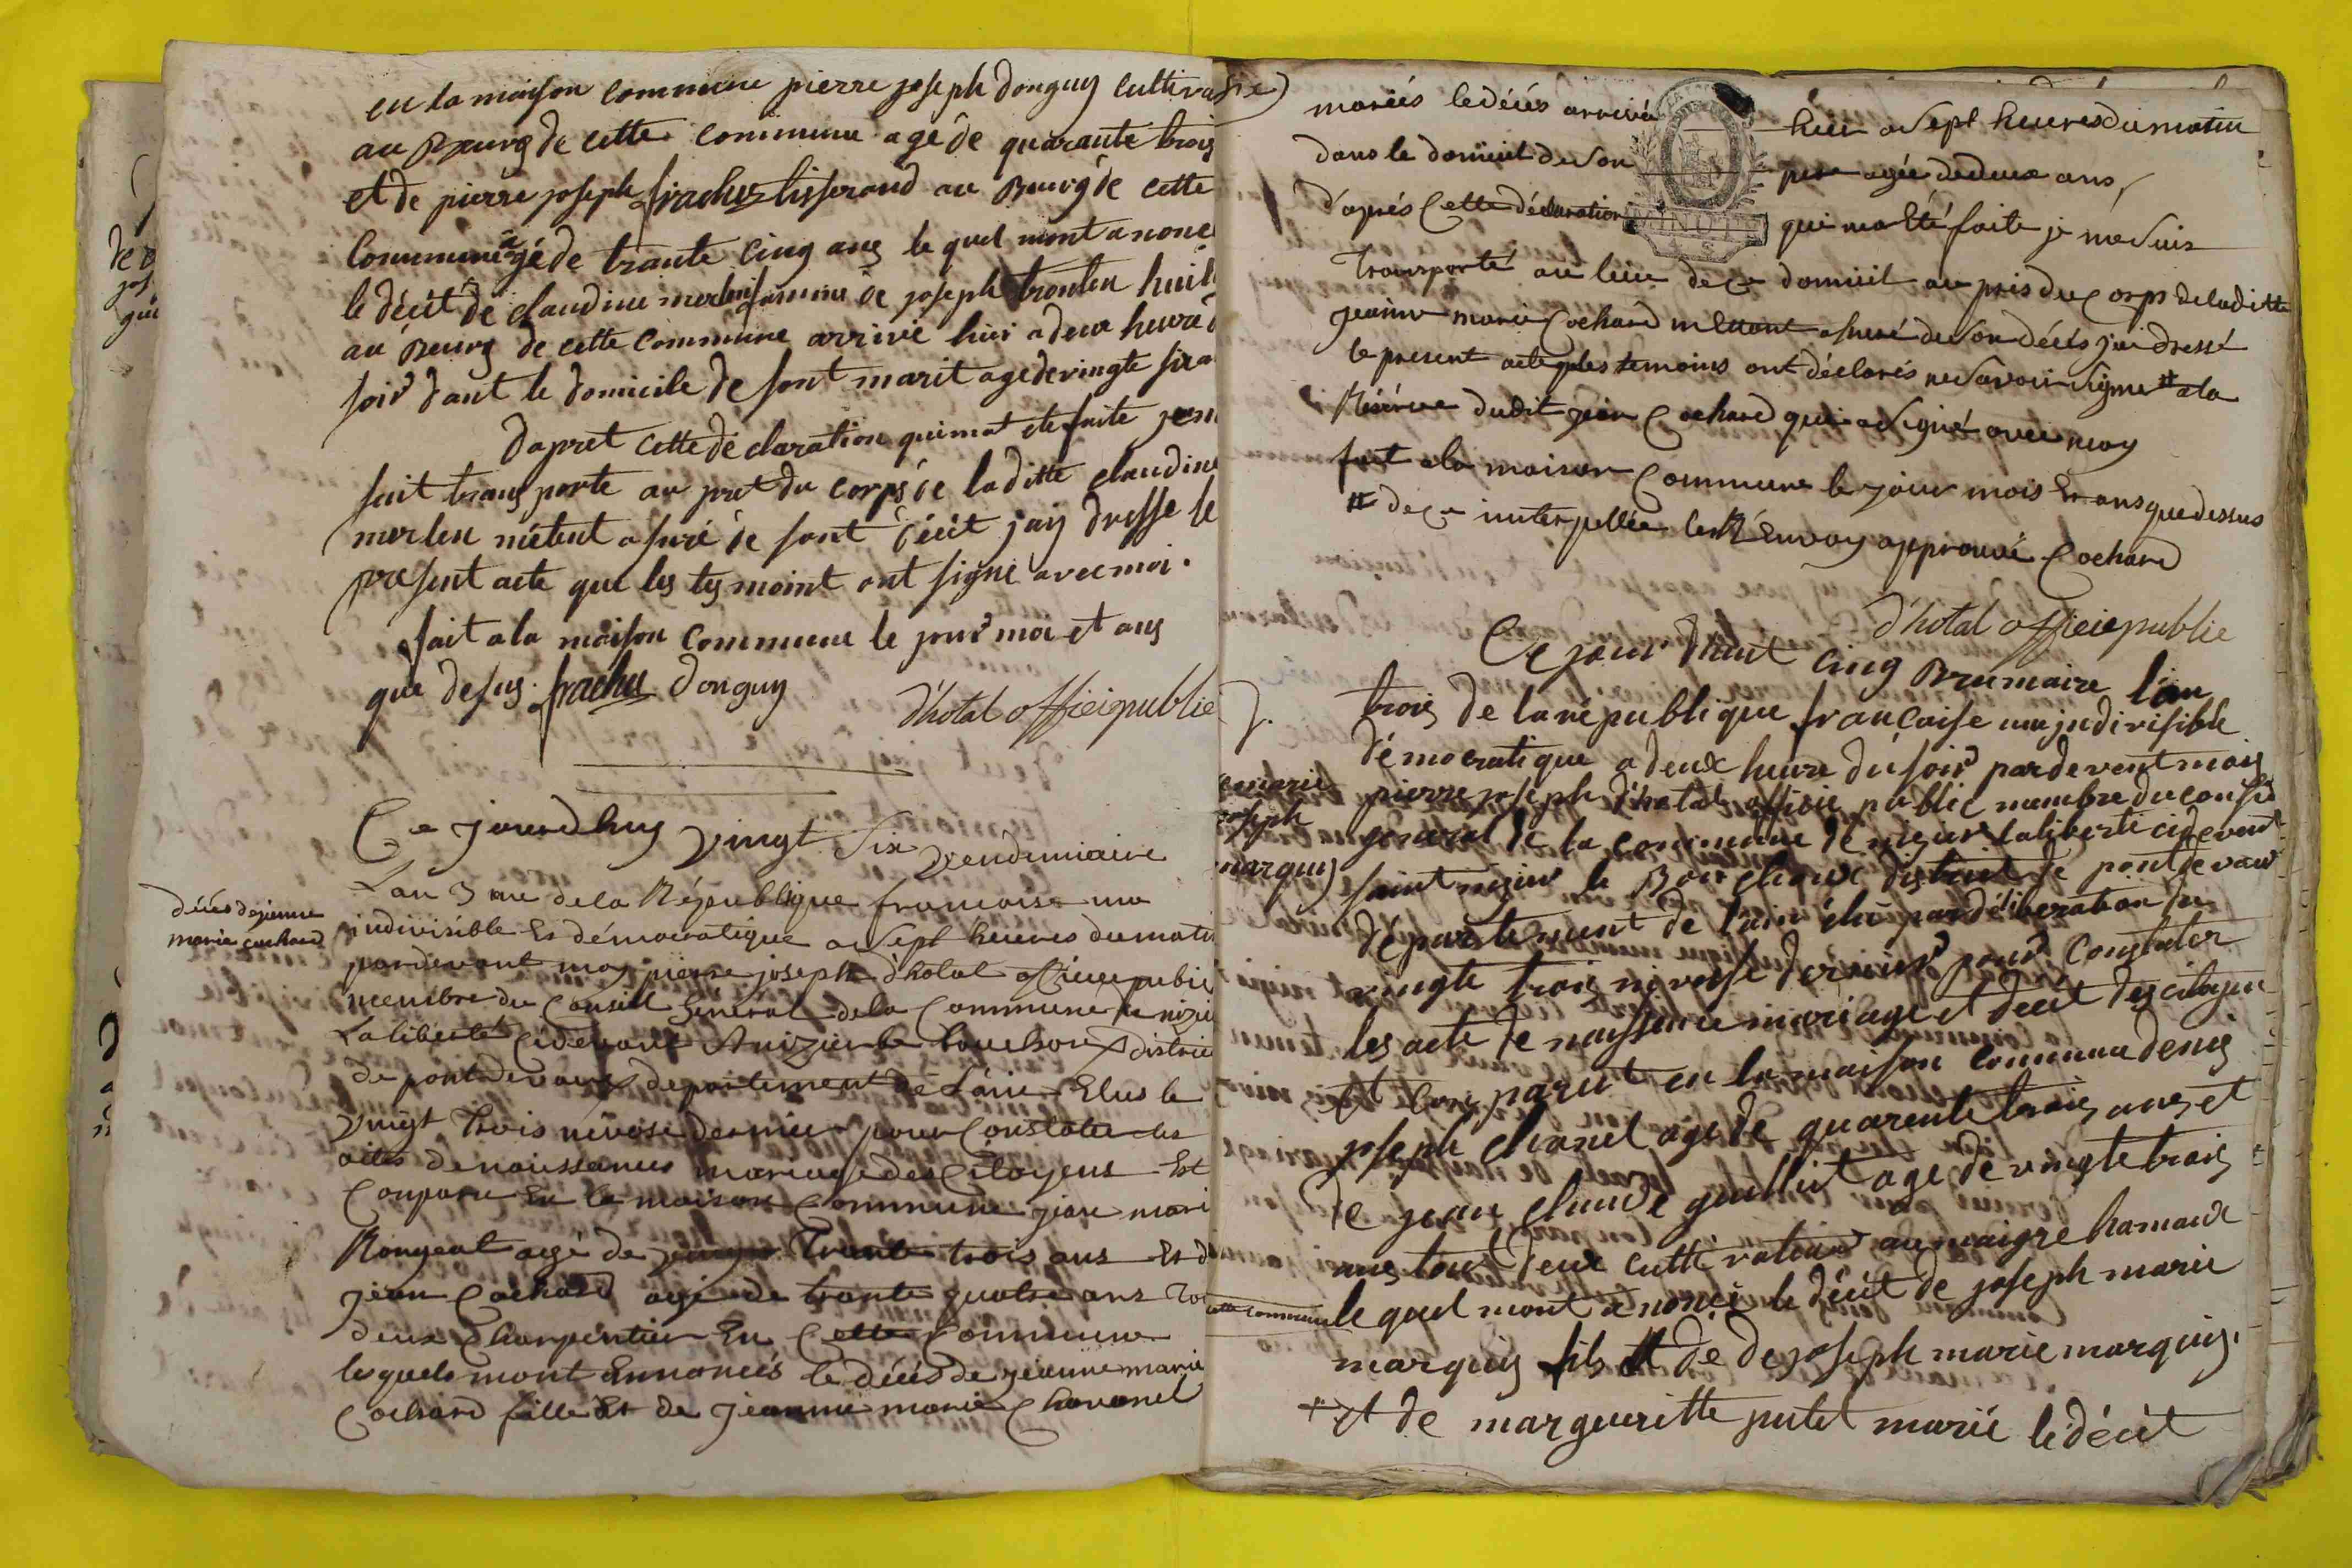 en la maison commune pierre joseph donguy cultiva
au Bourg de cette commune agé de quarante trois
et de pierre joseph frachet tisserand au Bourg de cette
Commune agé de trante cinq ans le quel mont anonc
le décét de claudine merlen famme de joseph
au Bourg de cette commune arrivé hier a deux heure d
soir dant le domicile de sont marit age de vingte six a
Dapret cette déclaration qui mat ete faite je m
suit transporte au pret du corps de laditte claudine
merlen métent asuré de sont décét jaiy dresse le
present acte que les tesmoint ont signé avec moi.
fait a la maison commune le jour moi et ans
que desus. frachet Donguy
d'hotal officie public
Ce jourdhuy vingt Six Vendemiaire
Lan 3 me de la République francaise une
décés de jeanne
marie cochard
indivisible Et démocratique a Sept heures du matin
pardevant moy pierre joseph d'hotal officier public
membre du Conseill Général de la Commune de nizie
La liberté Cidevant St nizier le bouchoux distric
de pontdevaux departement de L'ain Elus le
vingt trois nivôse dernier pour Constater les
actes de naissances mariage des Citoyens Est
Comparu En la maison Commune jean mari
Rongeat agé de Trente trois ans Et d
jean Cochard agé de trante quatre ans Tou
deux Charpentier En Cette Commune
lesquels mont Annoncés le décés de jeanne marie
Cochard fille Et de jeanne marie Chavanel
mariés le décés arrivée hier a Sept heures du matin
dans le domicil de Son pere agée de deux ans
d'aprés Cette déclaration qui ma Eté faite je me Suis
Transporté au lieu de Ce domicil au pris du Corps de laditte
jeanne marie Cochard mettant assuré de Son décés j'ai dressé
le present acte les temoins ont déclarés ne Savoir Signer # a la
Réserve dudit jean Cochard qui a Signé avec moy
fait a la maison Commune le jour mois Et ans que dessus
# de Ce interpellée le REnvoy approuvé Cochard
d'hotal officie public
Ce jour d'huit cinq Brumaire l'an
trois de la république francaise une jndivisible
démocratique a deux heure du soir pardevent moiy
emarie
joseph
marquis
pierre joseph d'hotal officie public membre du conseil
general de la commune de nizier la liberté cidevent
saint nizier le Bouchoux district de pontdevaux
département de l'ain élu par déliberation du
vingte trois nivosse dernier pour Constater
les acte de naissance mariage et décét des citoyen
et Comparut en la maison commune denis
joseph chanel age de quarente trois ans et
de jean claude guillot age de vingte trois
ans tous deux cultivateur au maigre hamaux
cette commune le quel mont anoncé le décét de joseph marie
marquis fils et de de joseph marie marquis.
+ et de margueritte putet marié le décét